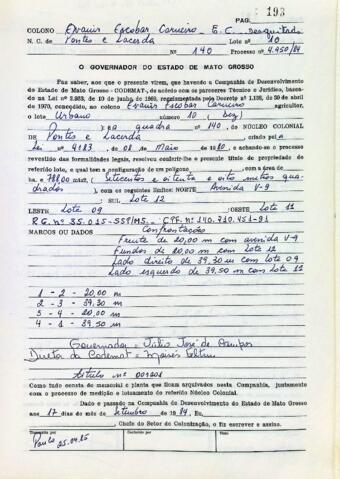 PAG. 193
COLONO Evanir Escobar Carneiro - E.C. desquitado
N. C. de Pontes e Lacerda Lote nº 10
Nº 140 Processo nº 4.950/84
O GOVERNADOR DO ESTADO DE MATO GROSSO
Faz saber, aos que o presente virem, que havendo a Companhia de Desenvolvimento
do Estado de Mato Grosso - CODEMAT-, de acordo com os pareceres Técnico e Jurídico, basea-
da na Lei nº 2.983, de 10 de junho de 1969, regulamentada pelo Decreto nº 1.138, de 30 de abril
de 1970, concedido, ao colono Evanir Escobar Carneiro agricultor,
o lote Urbano número 10 (dez)
) na quadra nº 140, do NÚCLEO COLONIAL
DE Pontes e Lacerda, criado pela
Lei nº 4183, de 08 de Maio de 1980, e achando-se o processo
revestido das formalidades legais, resolveu conferir-lhe o presente título de propriedade do
referido lote, o qual tem a configuração de um polígono com a área de
ha 788,00 m2, Setecentos e oitenta e oito metros qua-
drados), com os seguintes limites: NORTE Avenida V-9
SUL Lote 12
LESTE Lote 09 OESTE Lote 11
R.G. nº 35.015-SSP/MS. - CPF. nº 140.710.451-91
MARCOS OU DADOS Confrontações
Frente de 20,00 m com avenida V-9
Fundos de 20,00 m com lote 12
Lado direito de 39,30 m com lote 09
Lado esquerdo de 39,50 m com Lote 11
1 - 2 - 20,00 m
2 - 3 - 39,30 m
3 - 4 - 20,00 m
4 - 1 - 39,50 m
Governador = Júlio José de Campos
Diretor da Codemat = Moisés Feltrin
título nº 001201
Como tudo consta do memorial e planta que ficam arquivados nesta Companhia, juntamente
com o processo de medição e loteamento do referido Núcleo Colonial.
Dado e passado na Companhia de Desenvolvimento do Estado de Mato Grosso
aos 17 dias do mês de Setembro de 1984, Eu,
Chefe do Setor de Colonização, o fiz escrever e assino.
Transcrito por
Conferido por
Visto
Paulo 25.04.85